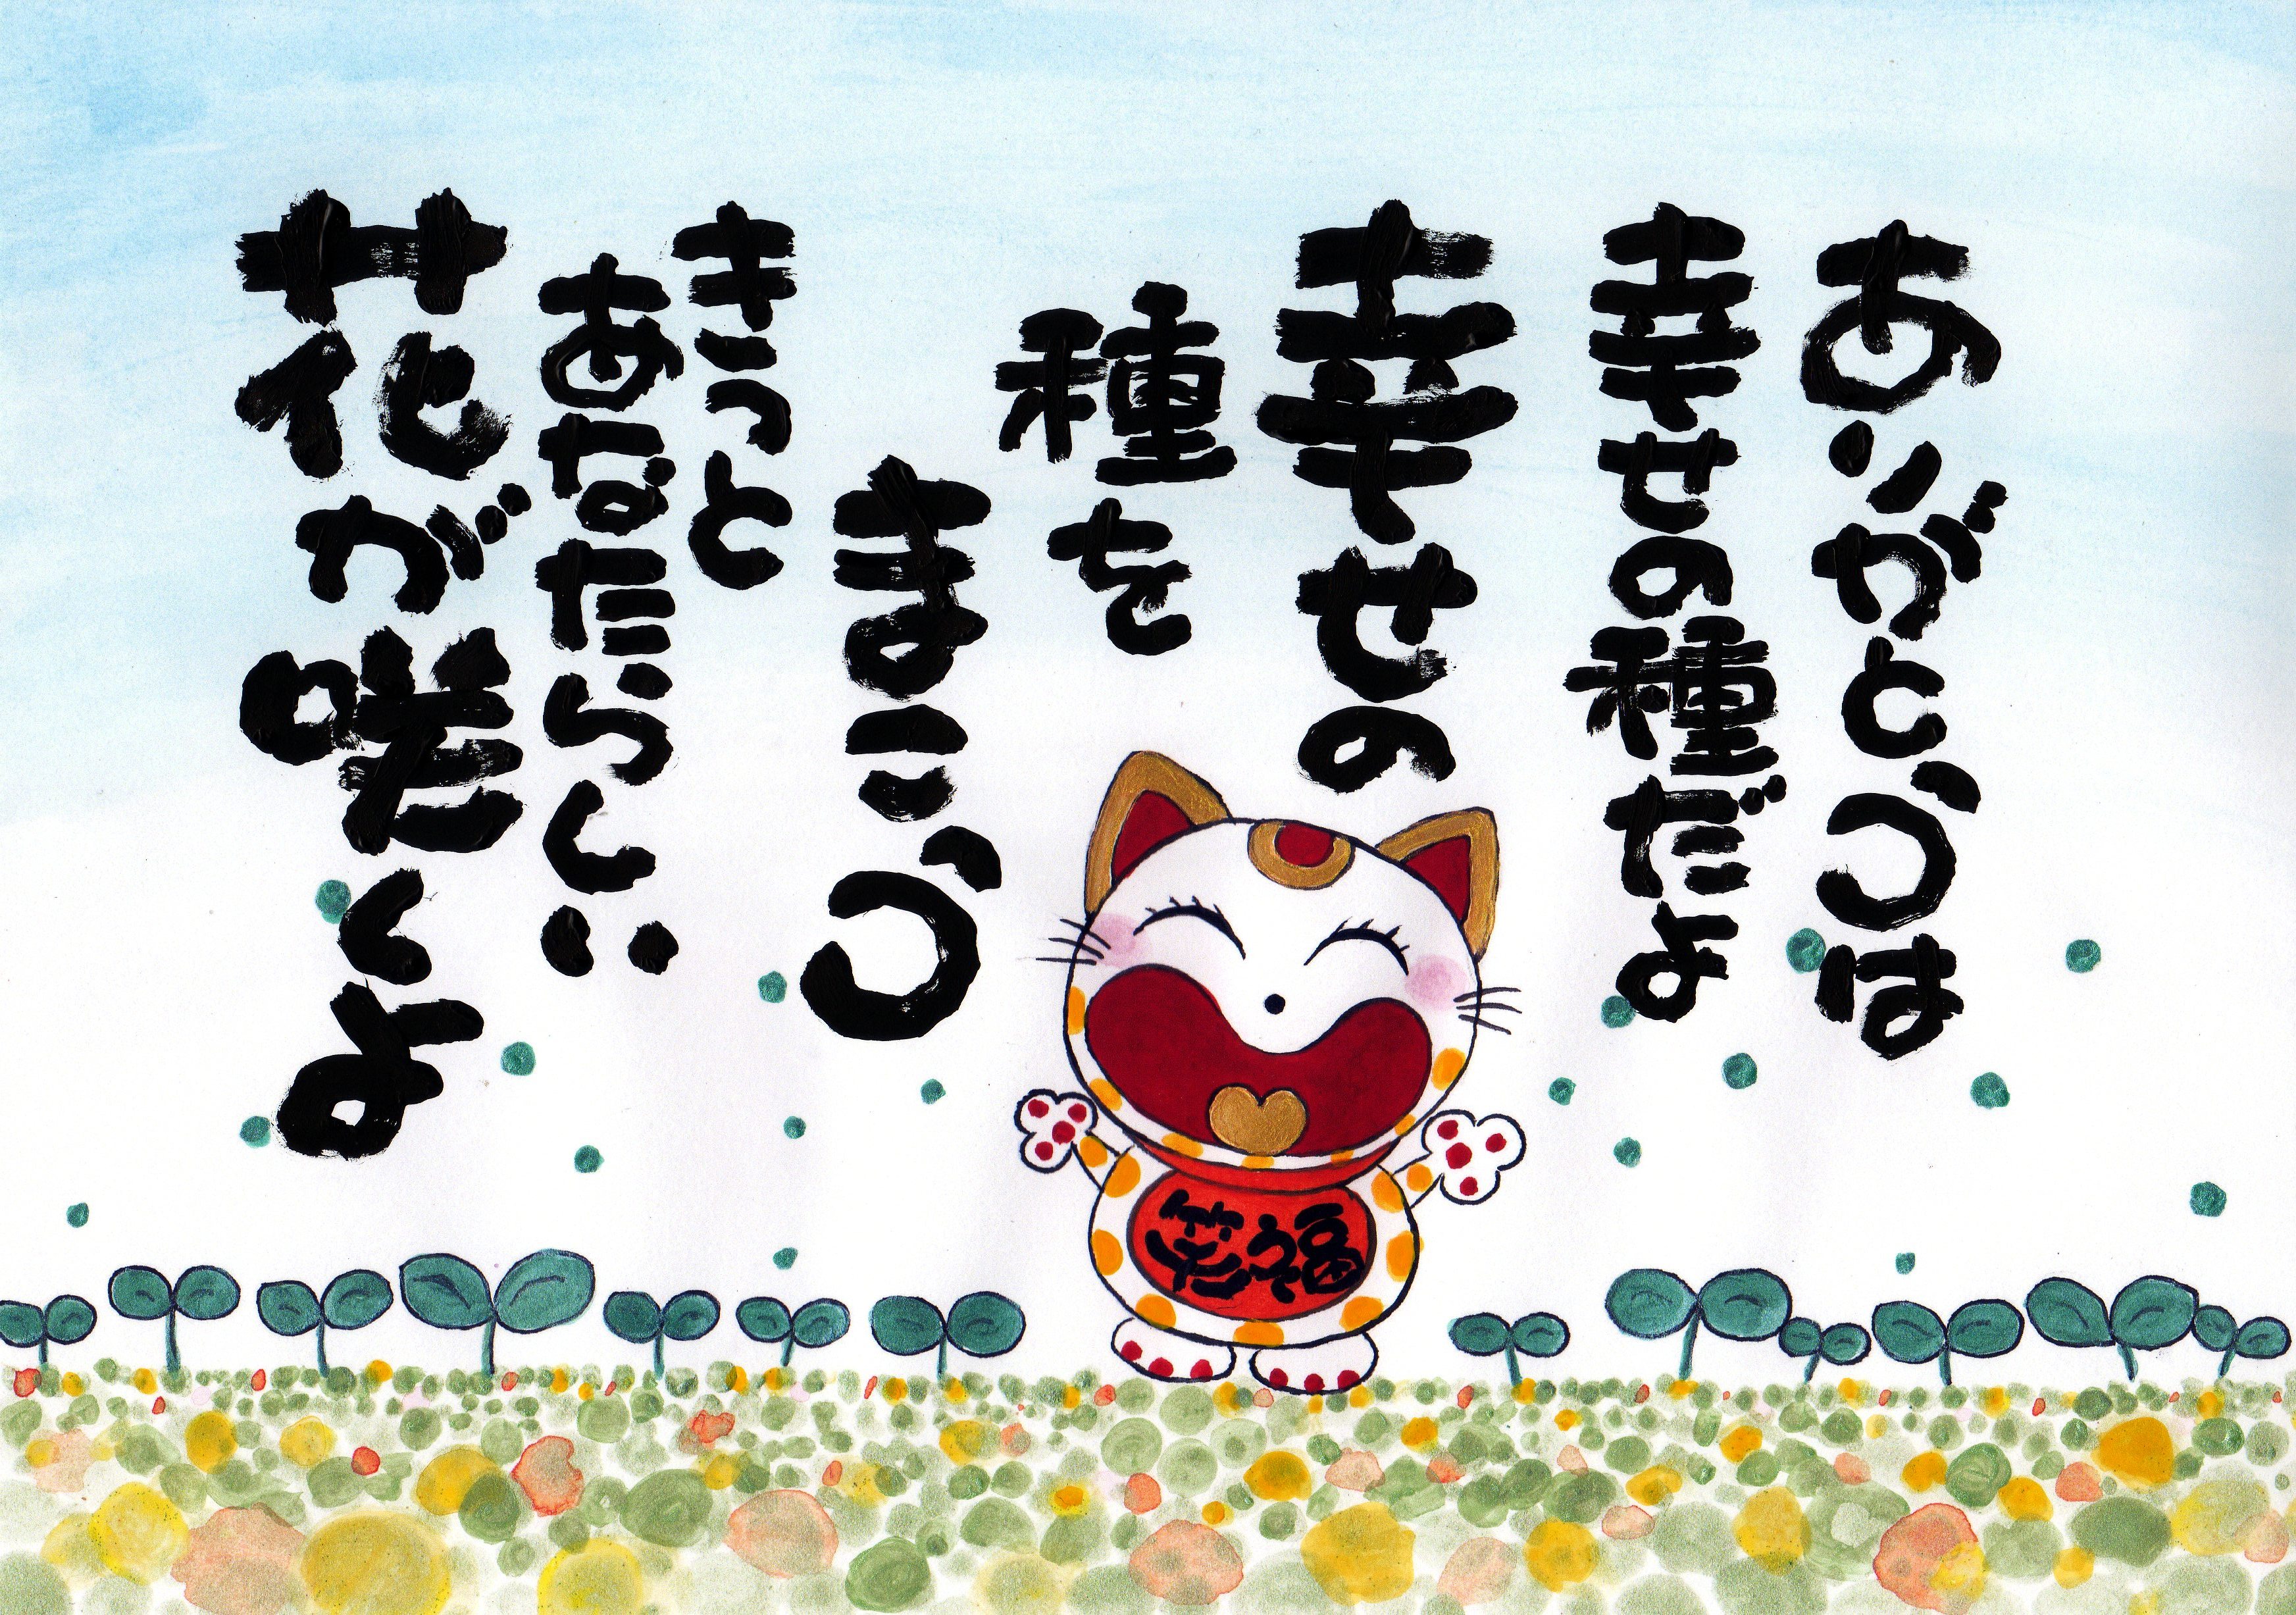 ありがとうは
幸せの種だよ
幸せの
種を
まこう
きっと
あなたらしい
花が咲くよ
笑う福